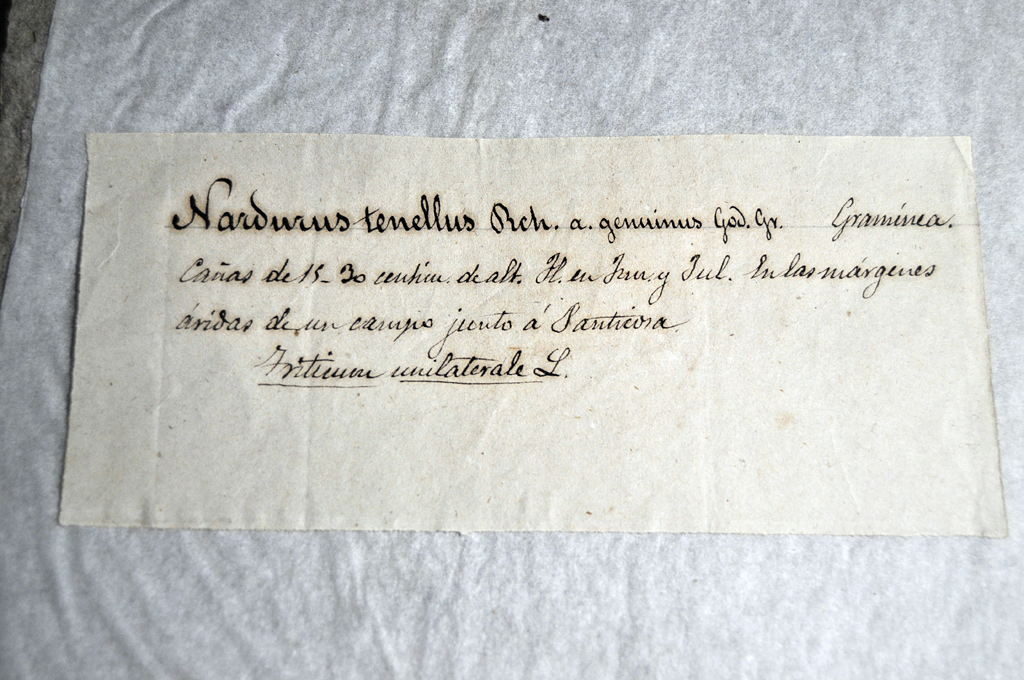 Nardurus tenellus Rch. a. genuinus God. Gr. Gramínea.
Cañas de 15-30 centim. de alt. Fl. en Jun. y Jul. En las márgenes
áridas de un campo junto á Panticosa.
Triticum unilaterale L.